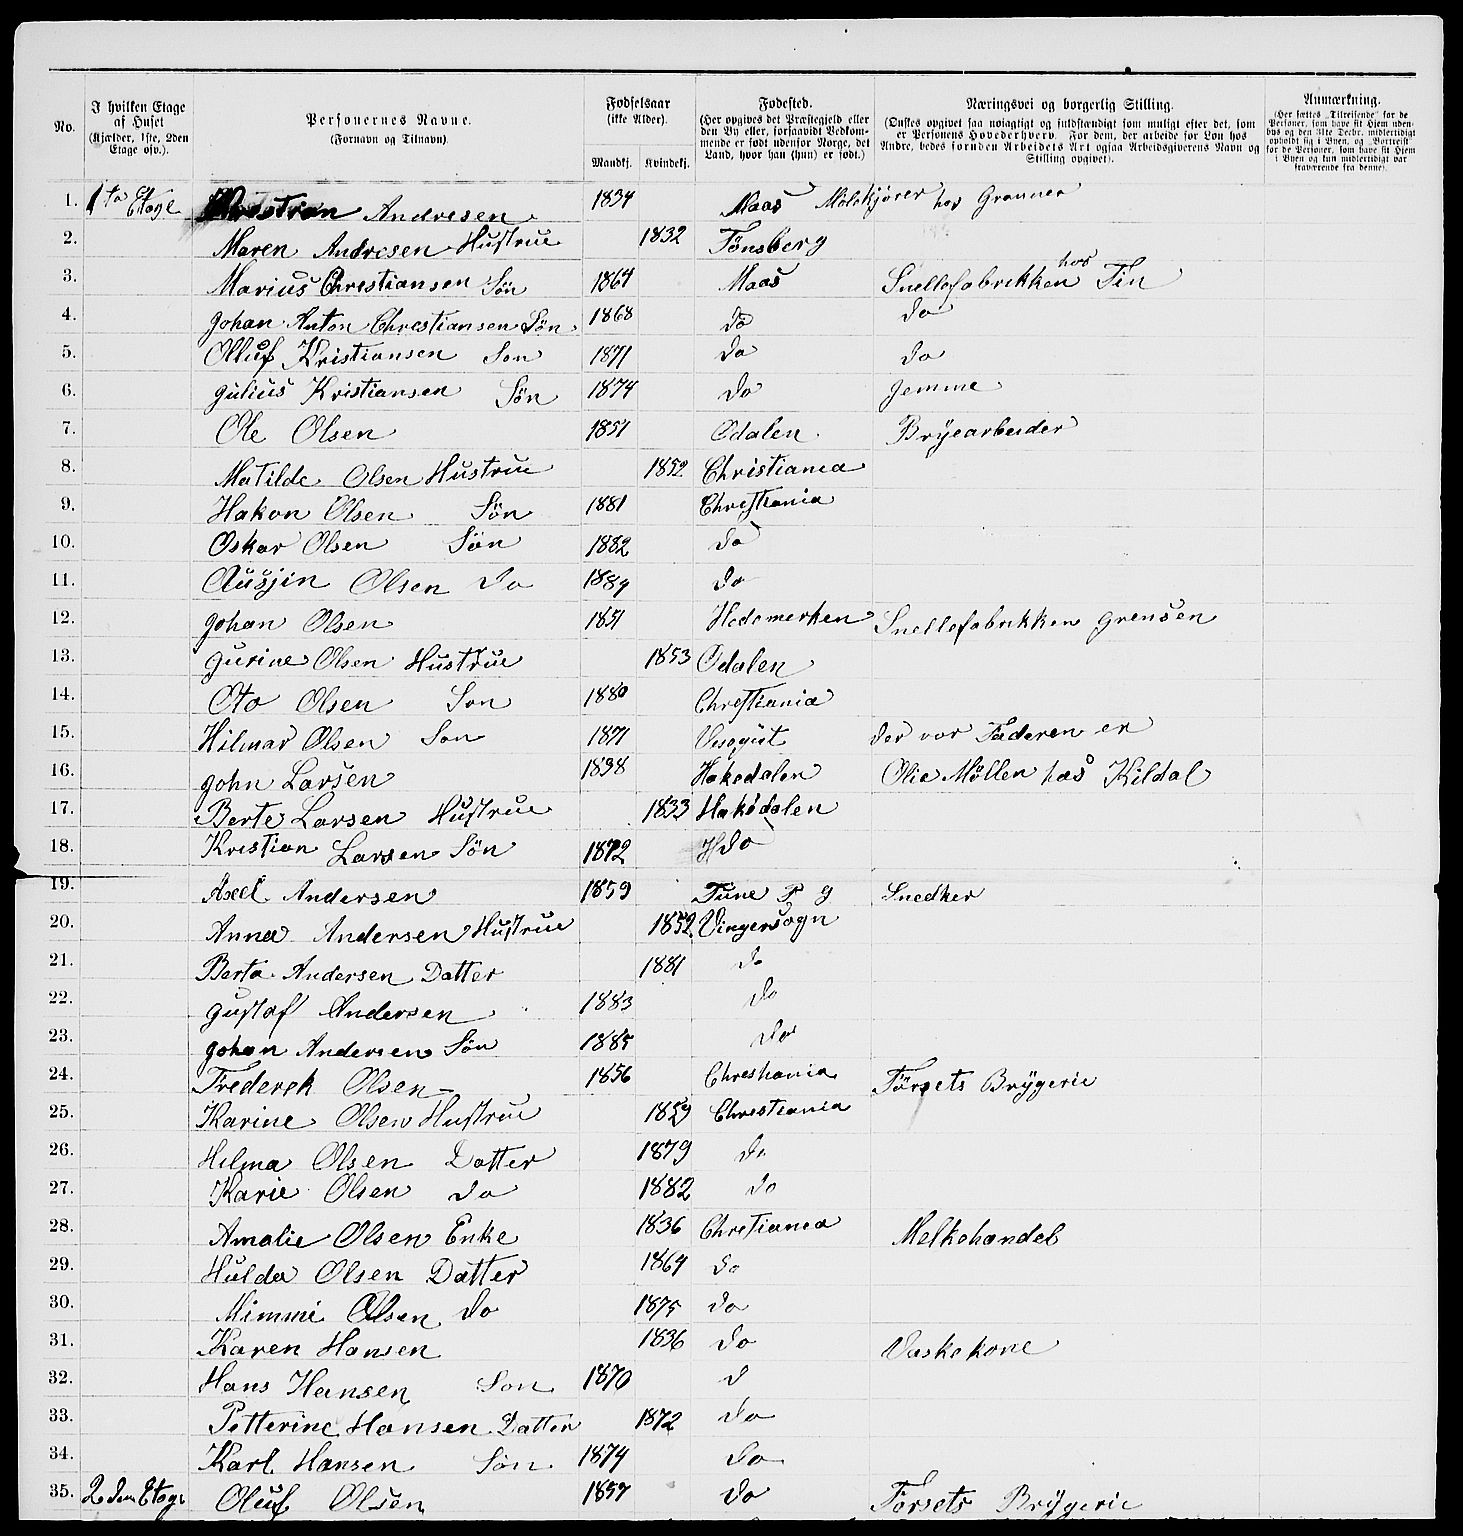 No.
I hvilken Etage af Huset (Kjælder, 1ste, 2den Etage osv.).
Personernes Navne. (Fornavn og Tilnavn).
Fødselsaar (ikke Alder). Mandkj. Kvindekj.
Fødested. (Her opgives det Præstegjeld eller den By eller, forsaavidt Vedkommende er født udenfor Norge, det Land, hvor han (hun) er født.)
Næringsvei og borgerlig Stilling. (Ønskes opgivet saa nøiagtigt og fuldstændigt som muligt efter det, som er Personens Hovederhverv. For dem, der arbeide for Løn hos Andre, bedes foruden Arbeidets Art ogsaa Arbeidsgiverens Navn og Stilling opgivet).
Anmærkning. (Her sættes „Tilreisende" for de Personer, som have sit Hjem udenbys og den 31te Decbr. midlertidigt opholdt sig i Byen, og „Bortreist" for de Personer, som have sit Hjem i Byen og kun midlertidigt var fraværende fra denne).
1. 1ta Etage Andresen 1834 Maas hos
2. Maren Andresen Hustrue 1832 Tønsberg
3. Marius Christiansen Søn 1864 Maas Snellefabrikken hos Fin
4. Johan Anton Christiansen Søn 1868 do do
5. Olluf Kristiansen Son 1871 do do
6. Julius Kristiansen Søn 1874 do jemme
7. Ole Olsen 1851 Odalen Bryearbeider
8. Matilde Olsen Hustrue 1852 Christiania
9. Hakon Olsen Søn 1881 Christiania
10. Oskar Olsen Søn 1882 do
11. Olsen do 1884 do
12. Johan Olsen 1851 Hedemerken Snellefabrikken Grensen
13. Gurine Olsen Hustrue 1853 Odalen
14. Oto Olsen Son 1880 Christiania
15. Hilmar Olsen Son 1871 der vor Faderen er
16. John Larsen 1838 Hakedalen Olie Møllen hos Kildal
17. Berte Larsen Hustrue 1833 Hakedalen
18. Kristian Larsen Søn 1872 H do
19. Axel Andersen 1859 Tune P g Snedker
20. Anna Andersen Hustrue 1852 Vingersogn
21. Berta Andersen Datter 1881 do
22. Gustaf Andersen 1883 do
23. Johan Andersen Søn 1885 do
24. Frederek Olsen 1856 Chrestiania Brygerie
25. Karine Olsen Hustrue 1859 Chrestiania
26. Hilma Olsen Datter 1879 do
27. Karie Olsen do 1882 do
28. Amalie Olsen Enke 1836 Chretiania Melkehandel
29. Hulda Olsen Datter 1864 do
30. Mimmi Olsen do 1875 do
31. Karen Hansen 1836 do Vaskekone
32. Hans Hansen Son 1870 d
33. Petterine Hansen Datter 1872 do
34. Karl Hansen Søn 1874 do
35. 2den Etage Oluf Olsen 1857 do Forsets Brygerie